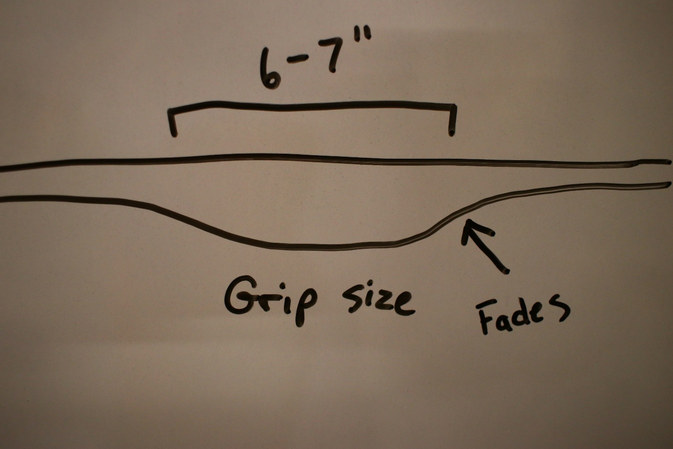 6-7"
Grip size
Fades